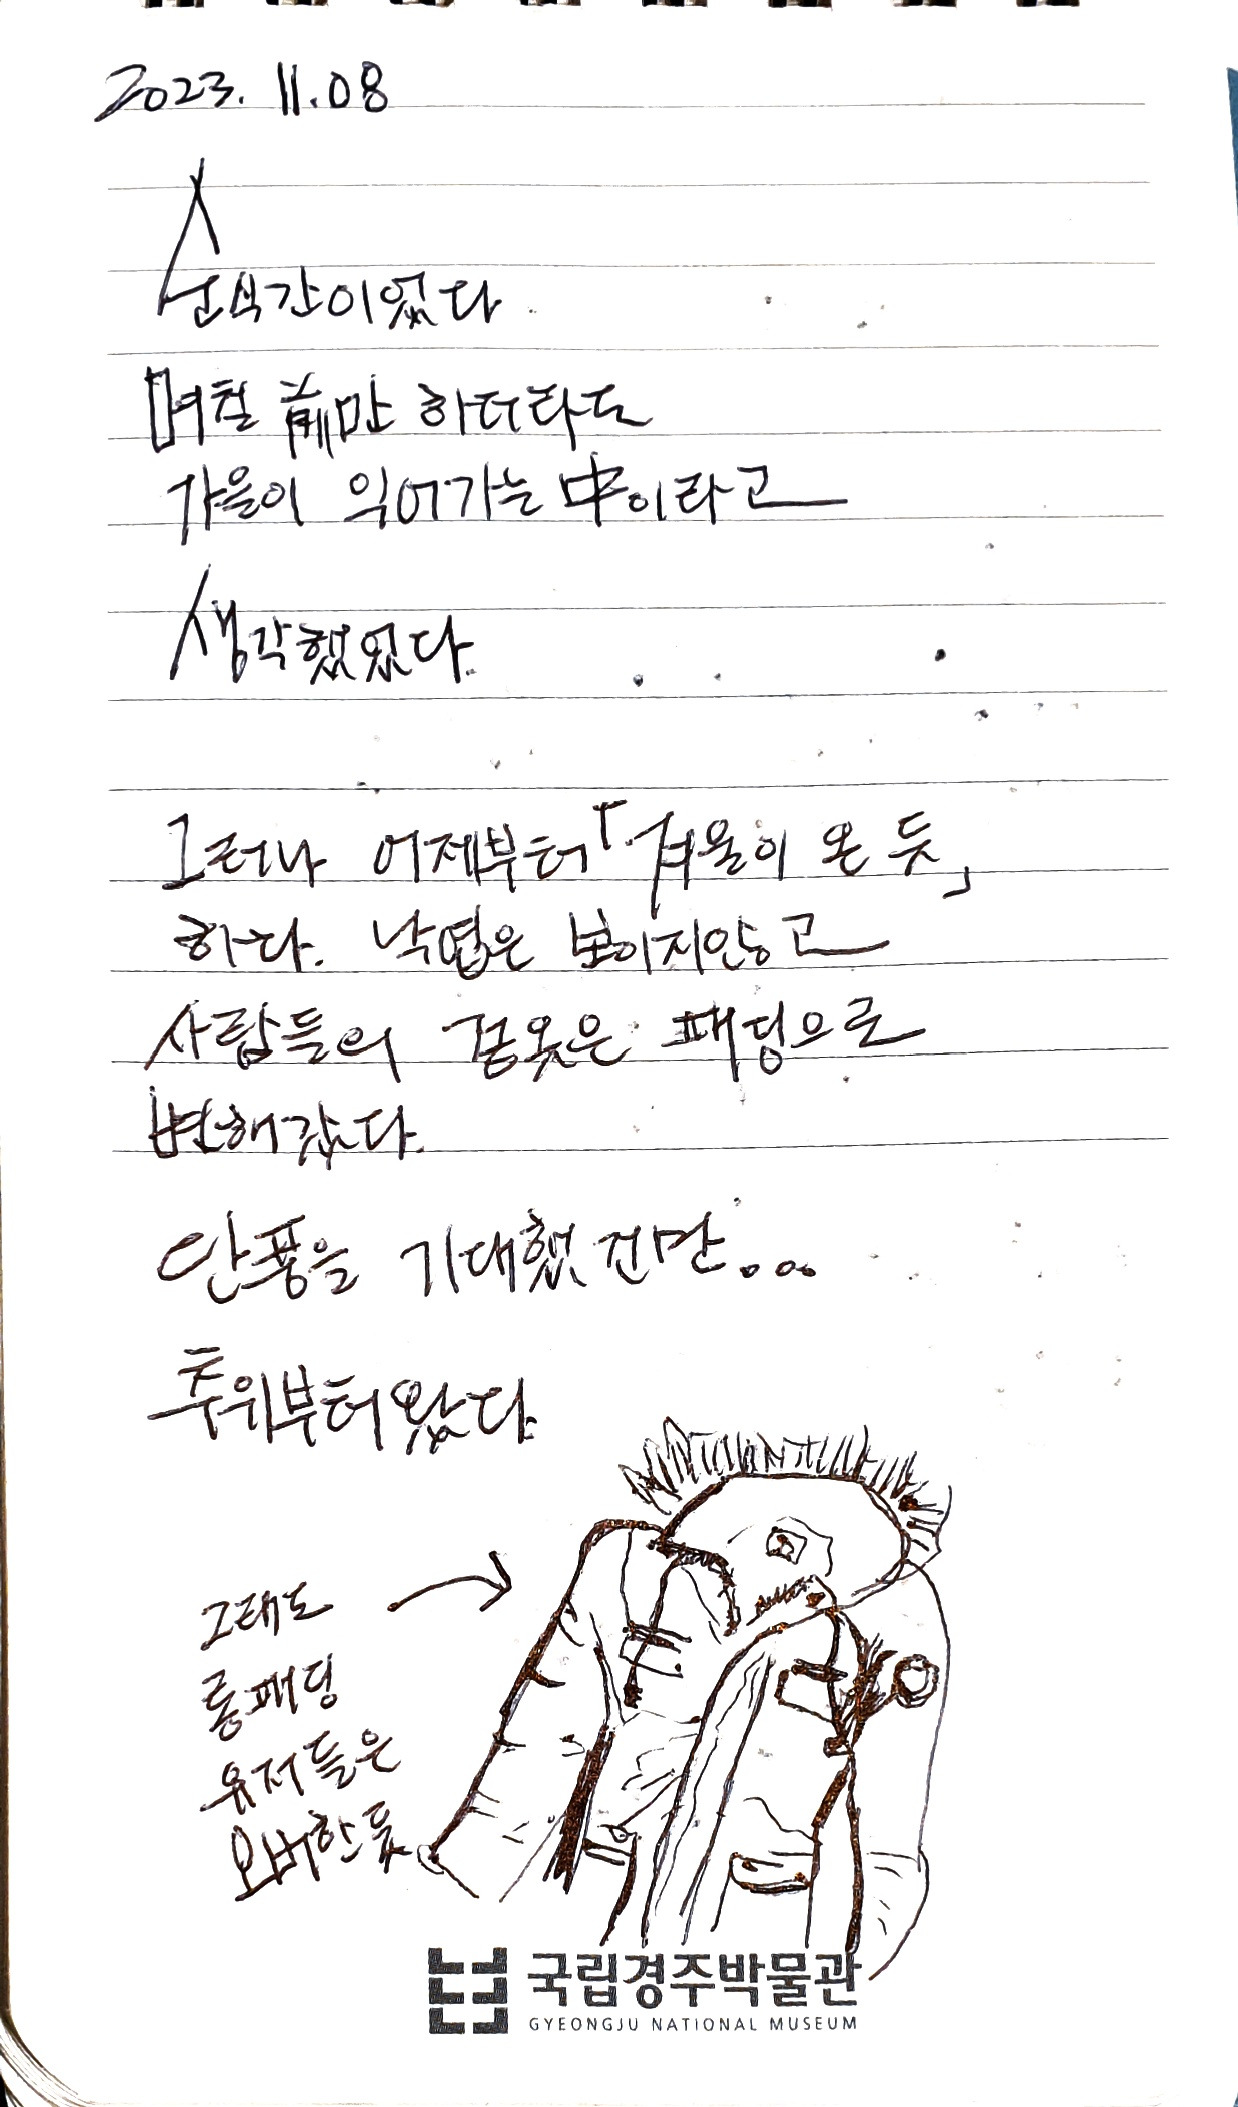 2023. 11.08
순식간이었다
며칠 前만 하더라도
가을이 익어가는 中이라고
생각했었다.
그러나 어제부터 「겨울이 온 듯」
하다. 낙엽은 보이지않고
사람들의 겉옷은 패딩으로
변해갔다.
단풍을 기대했건만...
추위부터 왔다.
그래도
롱패딩
유저들은
오버한듯
국립경주박물관
GYEONGJU NATIONAL MUSEUM